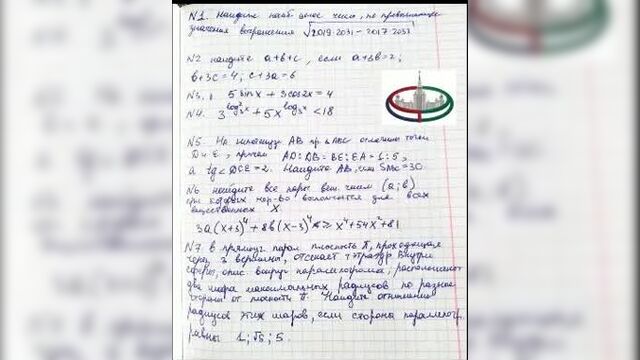 N1. Найдите наиб целое число, не превышающее
значения выражения √2019·2031-2017·2032
N2 найдите a+b+c, если a+3b=2;
b+3c=4; c+3a=6
N3. 5 sin x + 3cos2x = 4
N4. 3^log²₃x + 5x^log₃x < 18
N5. На гипотенузе AB пр. Δ ABC отмечены точки
D и E, причем AD:DB = BE:EA = 1:5,
а tg∠DCE = 2. Найдите AB, если SABC = 30
N6 найдите все пары вещ. чисел (a; b)
при которых нер-во выполняется для всех
вещественных x.
3a(x+3)⁴ + 8b(x-3)⁴ ≥ x⁴+54x²+81
N7. В прямоуг. парал плоскость π, проходящая
через 3 вершины, отсекает тетраэдр. Внутри
сферы, опис вокруг параллелограмма, расположены
два шара максимальных радиусов по разные
стороны от плоскости π. Найдите отношение
радиусов этих шаров, если стороны параллелогр.
равны 1; √5; 5.